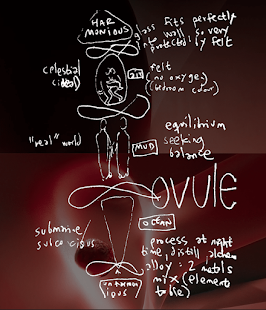 HAR
MONIOUS
glass fits perfectly
into wall so very
protected by felt
celestial
felt
(no oxygen)
(bedroom colour)
"real" world
equilibrium
seeking
balance
MUD
OVULE
OCEAN
submarine
process at right
time, distill, alchem
alloy: 2 metals
mix (element
to lie)